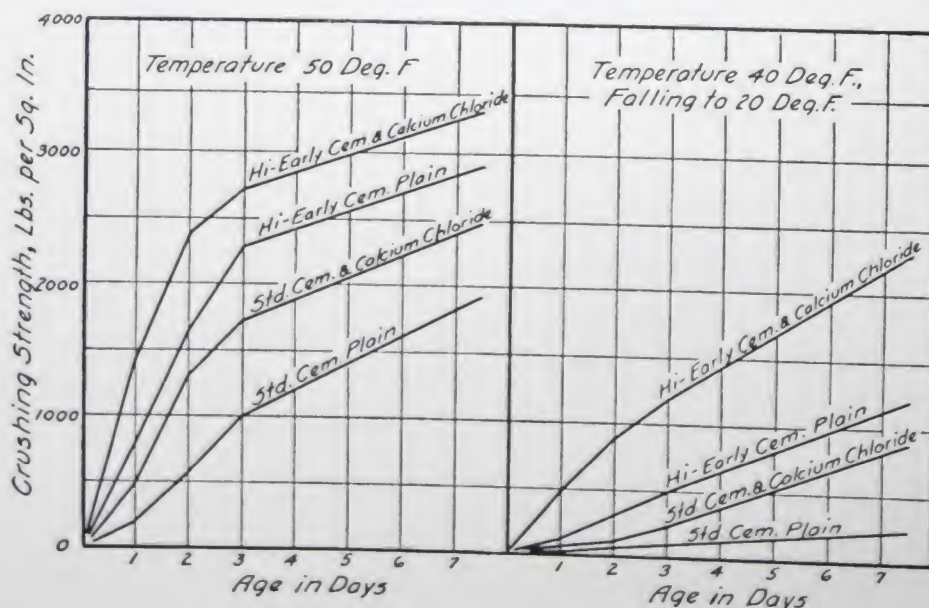 4000
3000
2000
1000
0
Crushing Strength, Lbs. per Sq. In.
Temperature 50 Deg. F
Hi-Early Cem. & Calcium Chloride
Hi-Early Cem. Plain
Std. Cem. & Calcium Chloride
Std. Cem. Plain
1 2 3 4 5 6 7
Age in Days
Temperature 40 Deg. F.,
Falling to 20 Deg. F.
Hi-Early Cem. & Calcium Chloride
Hi-Early Cem. Plain
Std. Cem. & Calcium Chloride
Std Cem. Plain
1 2 3 4 5 6 7
Age in Days